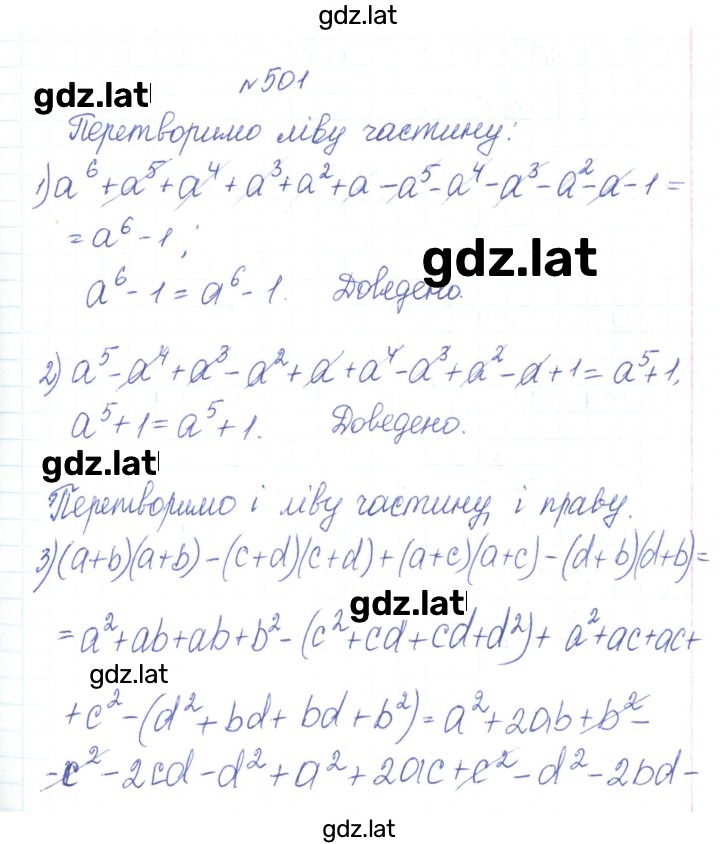 gdz.lat
№501
gdz.lat
Перетворимо ліву частину:
1) a⁶ + a⁵ + a⁴ + a³ + a² + a - a⁵ - a⁴ - a³ - a² - a - 1 =
= a⁶ - 1;
gdz.lat
a⁶ - 1 = a⁶ - 1. Доведено.
2) a⁵ - a⁴ + a³ - a² + a + a⁴ - a³ + a² - a + 1 = a⁵ + 1,
a⁵ + 1 = a⁵ + 1. Доведено.
gdz.lat
Перетворимо і ліву частину, і праву.
3) (a+b)(a+b) - (c+d)(c+d) + (a+c)(a+c) - (d+b)(d+b) =
gdz.lat
= a² + ab + ab + b² - (c² + cd + cd + d²) + a² + ac + ac +
gdz.lat
+ c² - (d² + bd + bd + b²) = a² + 2ab + b² -
- c² - 2cd - d² + a² + 2ac + c² - d² - 2bd -
gdz.lat